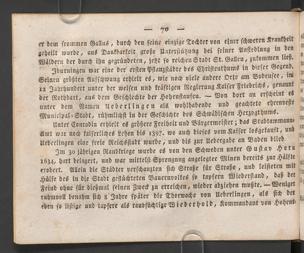 — 70 —
er dem frommen Gallus, durch den seine einzige Tochter von einer schweren Krankheit
geheilt wurde, aus Dankbarkeit große Unterstützung bei seiner Ansiedlung in den
Wäldern der durch ihn gegründeten, jetzt so reichen Stadt St. Gallen, zukommen ließ.
Ihuringen war eine der ersten Pflanzstädte des Christenthums in dieser Gegend.
Seinen größten Aufschwung erhielt es, wie noch viele andere Orte am Bodensee, im
12 Jahrhundert unter der weisen und kräftigen Regierung Kaiser Friedrichs, genannt
der Rothbart, aus dem Geschlechte der Hohenstaufen. — Von dort an erscheint es
unter dem Namen Ueberlingen als wohlhabende und geachtete ehrenveste
Municipal-Stadt, rühmlich in der Geschichte des Schwäbischen Herzogthums.
Unter Conradin erhielt es größere Freiheit und Bürgermeister; das Stadtammann
Amt war noch kaiserliches Lehen bis 1397, wo auch dieses vom Kaiser losgekauft, und
Ueberlingen eine freie Reichsstadt wurde, und bis zur Uebergabe an Baden blieb.
Im 30 jährigen Kriege wurde es von den Schweden unter Gustav Horn
1634, hart belagert, und war mittelst Sprengung angelegter Minen bereits zur Hälfte
erobert. Allein die Städter verschanzten sich Straße für Straße, und leisteten mit
Hülfe des in die Stadt geflüchteten Bauernvolkes so tapfern Widerstand, daß der
Feind ohne für diesmal seinen Zweck zu erreichen, wieder abziehen mußte. — Weniger
ruhmvoll benahm sich 2 Jahre später die Thorwache von Ueberlingen, als sich der
eben so listige und tapfere als raubsüchtige Wiederhold, Kommandant von Hohent-